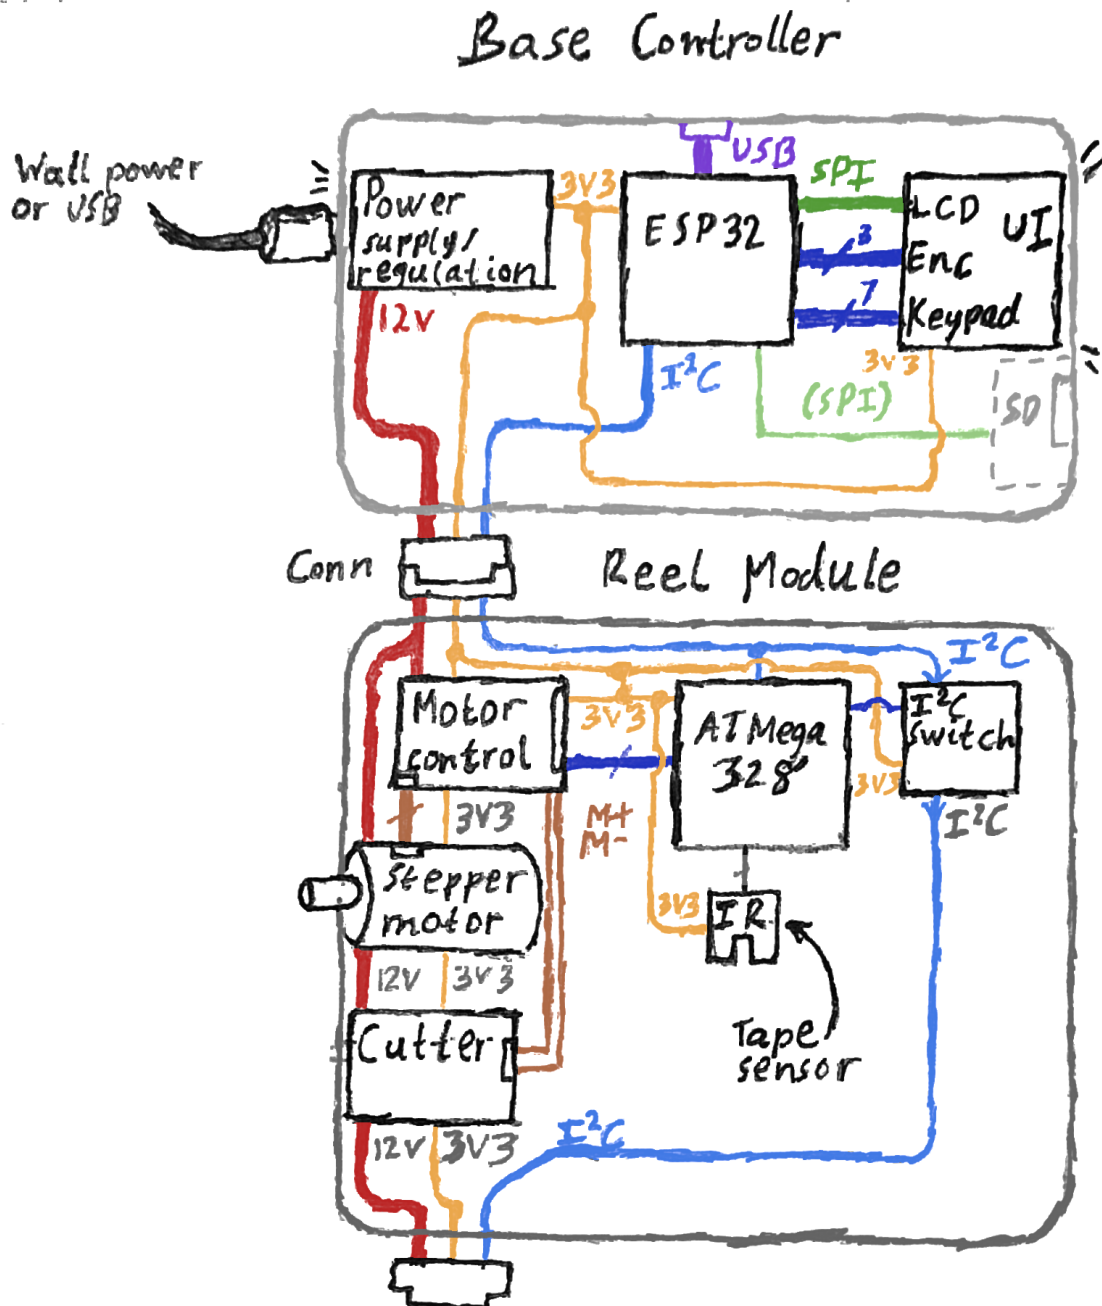 Base Controller
Wall power
or USB
Power
supply/
regulation
3V3
USB
ESP32
SPI
3
7
LCD
UI
Enc
Keypad
12V
I²C
(SPI)
3V3
SD
Conn
Reel Module
I²C
Motor
control
3V3
ATMega
328
I²C
switch
3V3
I²C
3V3
M+
M-
stepper
motor
3V3
IR
12V
3V3
Tape
sensor
Cutter
12V
3V3
I²C